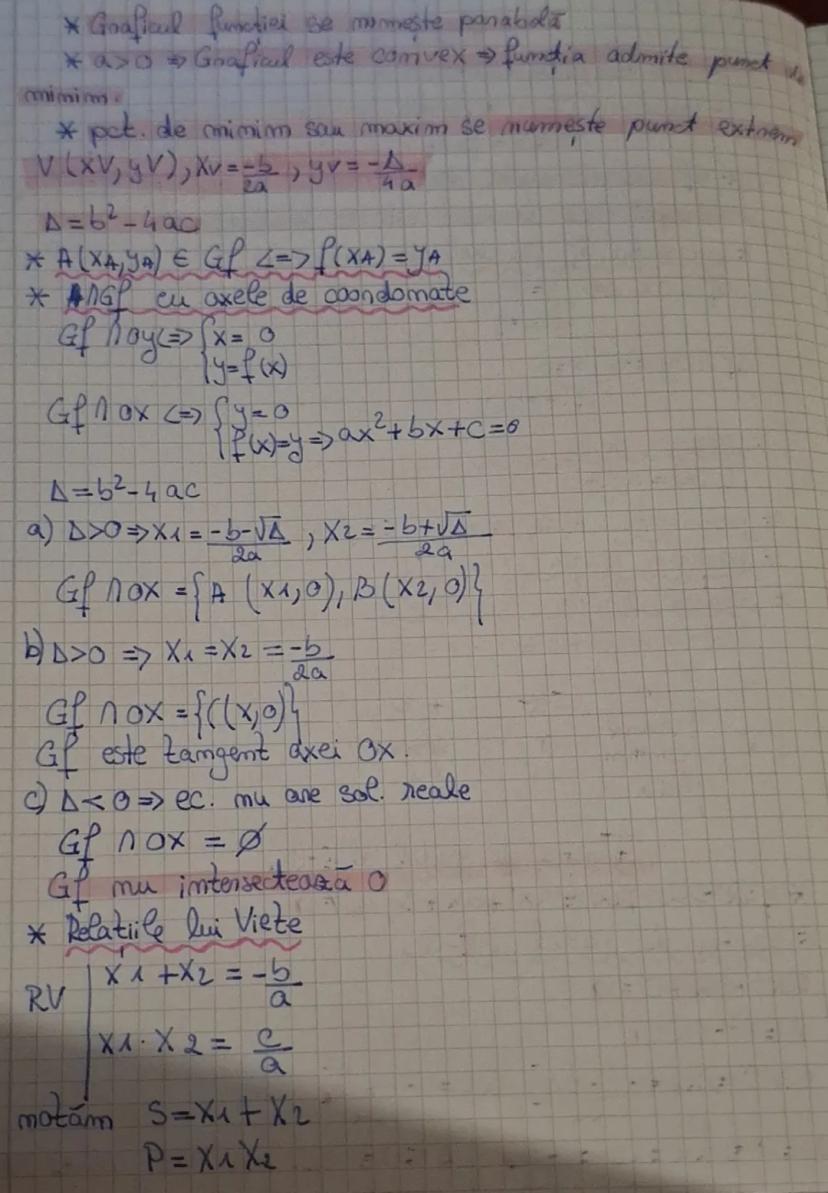 * Graficul funcției se numește parabolă
* a>0 => Graficul este convex => funcția admite punct de
minim.
* pct. de minim sau maxim se numește punct extrem
V(xV, yV), xV = -b/2a, yV = -Δ/4a
Δ = b² - 4ac
* A(xA, yA) ∈ Gf <=> f(xA) = yA
* ∩Gf cu axele de coordonate
Gf ∩ oy <=> { x = 0
{ y = f(x)
Gf ∩ ox <=> { y = 0
{ f(x) = y => ax² + bx + c = 0
Δ = b² - 4ac
a) Δ>0 => x1 = -b-√Δ/2a, x2 = -b+√Δ/2a
Gf ∩ ox = {A (x1, 0), B(x2, 0)}
b) Δ>0 => x1 = x2 = -b/2a
Gf ∩ ox = {C(x,0)}
Gf este tangent axei Ox.
c) Δ < 0 => ec. nu are sol. reale
Gf ∩ ox = ∅
Gf nu intersectează O
* Relațiile lui Viete
RV | x1 + x2 = -b/a
| x1 · x2 = c/a
notăm S = x1 + x2
P = x1 x2